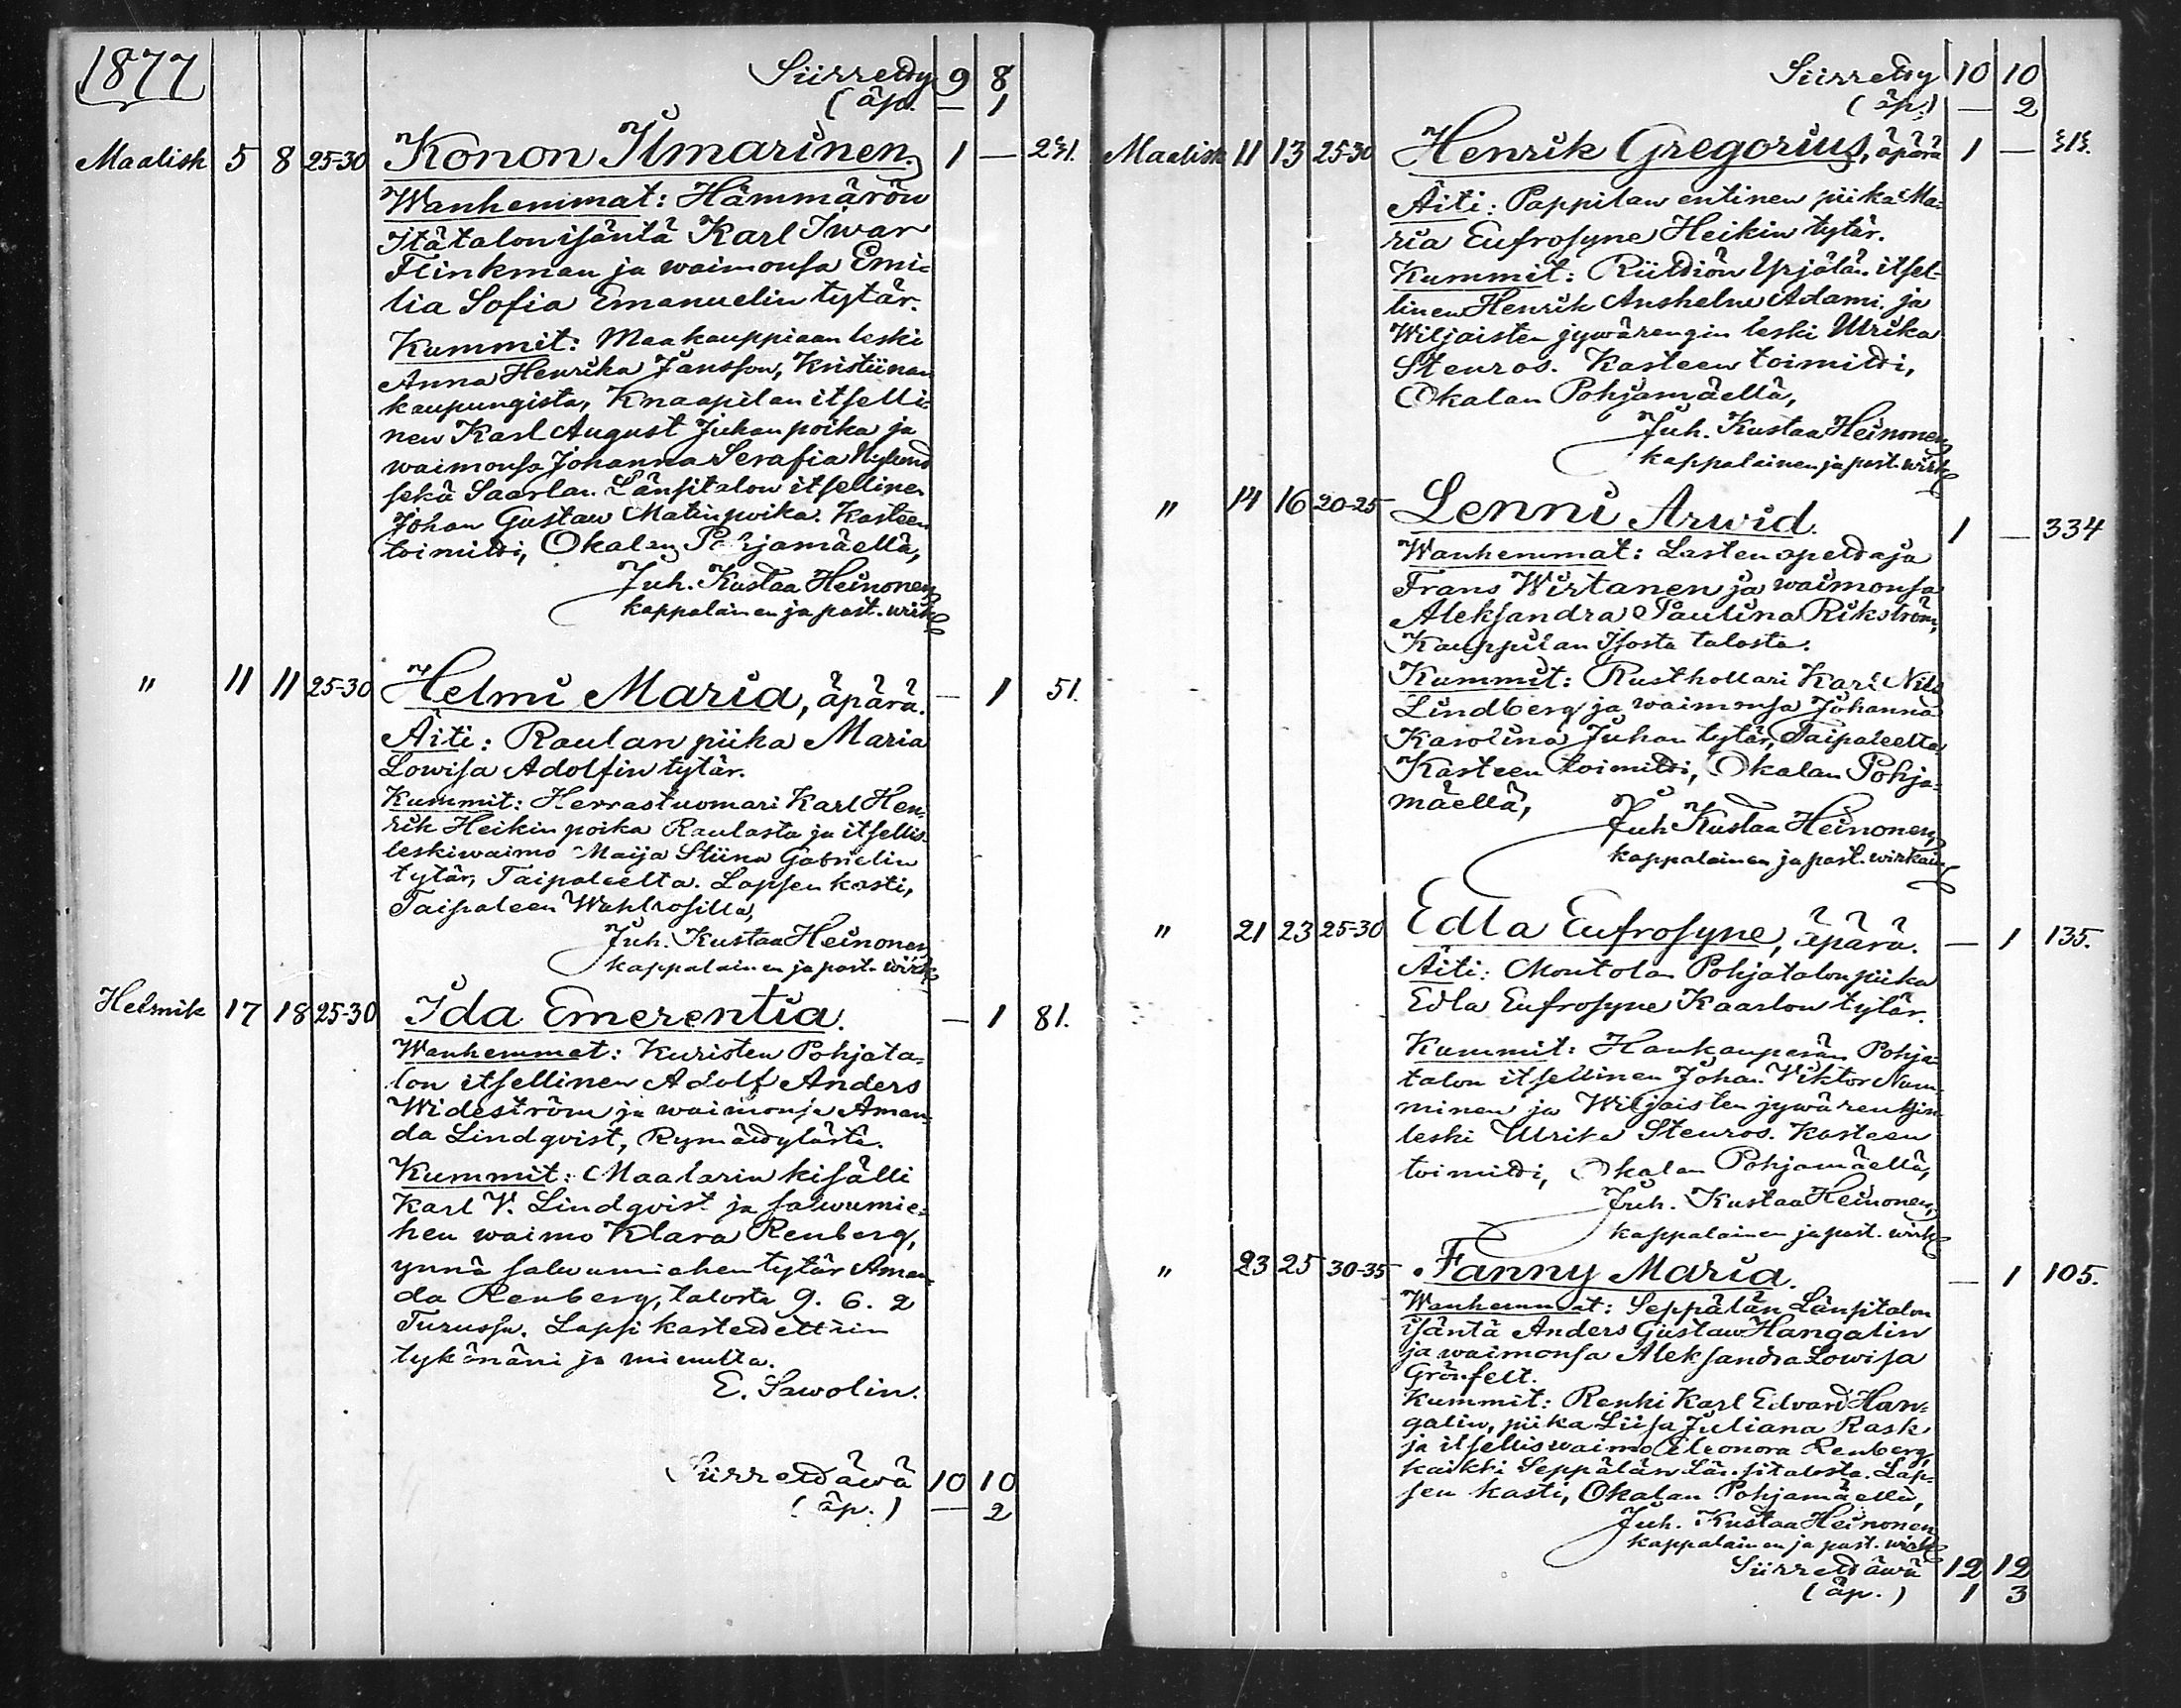 1877
Siirretty 9 8
(äp. — 1
Maalisk 5 8 25-30 Konon Ilmarinen. 1 — 231.
Wanhemmat: Hämmärön
Itätalon isäntä Karl Iwar
Flinkman ja waimonsa Emi-
lia Sofia Emanuelin tytär.
Kummit: Maakauppiaan leski
Anna Henrika Jansson, Kristiinan
kaupungista, Knaapilan itselli-
nen Karl August Juhan poika ja
waimonsa Johanna Serafia Nylund
sekä Saarlan Länsitalon itsellinen
Johan Gustaw Matinpoika. Kasteen
toimitti, Okalan Pohjamäellä,
Juh. Kustaa Heinonen
kappalainen ja past. wirk
" 11 11 25-30 Helmi Maria, äpärä. — 1 51.
Äiti: Raulan piika Maria
Lowisa Adolfin tytär.
Kummit: Herrastuomari Karl Hen-
rik Heikin poika Raulasta ja itsellis-
leskiwaimo Maija Stiina Gabrielin
tytär, Taipaleelta. Lapsen kasti,
Taipaleen Wahlrosilla,
Juh. Kustaa Heinonen
kappalainen ja past. wirk
Helmik 17 18 25-30 Ida Emerentia. — 1 81.
Wanhemmat: Kuristen Pohjata-
lon itsellinen Adolf Anders
Wideström ja waimonsa Aman-
da Lindqvist, Rymättylästä.
Kummit: Maalarin kisälli
Karl V. Lindqvist ja salwumie-
hen waimo Klara Renberg,
ynnä salwumiehen tytär Aman-
da Renberg, talosta 9. 6. 2
Turussa. Lapsi kastettettiin
tykönäni ja minulta.
E. Sawolin.
Siirrettäwä 10 10
(äp.) — 2
Siirretty 10 10
(äp.) — 2
Maalisk 11 13 25-30 Henrik Gregorius, äpärä 1 — 313.
Äiti: Pappilan entinen piika Ma-
ria Eufrosyne Heikin tytär.
Kummit: Riittiön Yrjölän itsel-
linen Henrik Anshelm Adami ja
Wiljaisten jywärengin leski Ulrika
Stenros. Kasteen toimitti,
Okalan Pohjamäellä,
Juh. Kustaa Heinonen
kappalainen ja past. wirk
" 14 16 20-25 Lenni Arwid. 1 — 334
Wanhemmat: Lasten opettaja
Frans Wirtanen ja waimonsa
Aleksandra Paulina Rikström,
Kauppilan Isosta talosta.
Kummit: Rusthollari Karl Nils
Lindberg ja waimonsa Johanna
Karolina Juhan tytär, Taipaleelta
Kasteen toimitti, Okalan Pohja-
mäellä,
Juh Kustaa Heinonen,
kappalainen ja past. wirkain
" 21 23 25-30 Edla Eufrosyne, äpärä. — 1 135.
Äiti: Montolan Pohjatalon piika
Edla Eufrosyne Kaarlon tytär.
Kummit: Haukanperän Pohja-
talon itsellinen Johan Viktor Num-
minen ja Wiljaisten jywärenkin
leski Ulrika Stenros. Kasteen
toimitti, Okalan Pohjamäellä,
Juh. Kustaa Heinonen,
kappalainen ja past. wirk
" 23 25 30-35 Fanny Maria. — 1 105.
Wanhemmat: Seppälän Länsitalon
isäntä Anders Gustaw Hangalin
ja waimonsa Aleksandra Lowisa
Grönfelt.
Kummit: Renki Karl Edvard Han-
galin, piika Liisa Juliana Rask
ja itselliswaimo Eleonora Renberg,
kaikki Seppälän Länsitalosta. Lap-
sen kasti, Okalan Pohjamäellä,
Juh. Kustaa Heinonen
kappalainen ja past. wirk
Siirrettäwä 12 12
(äp.) 1 3